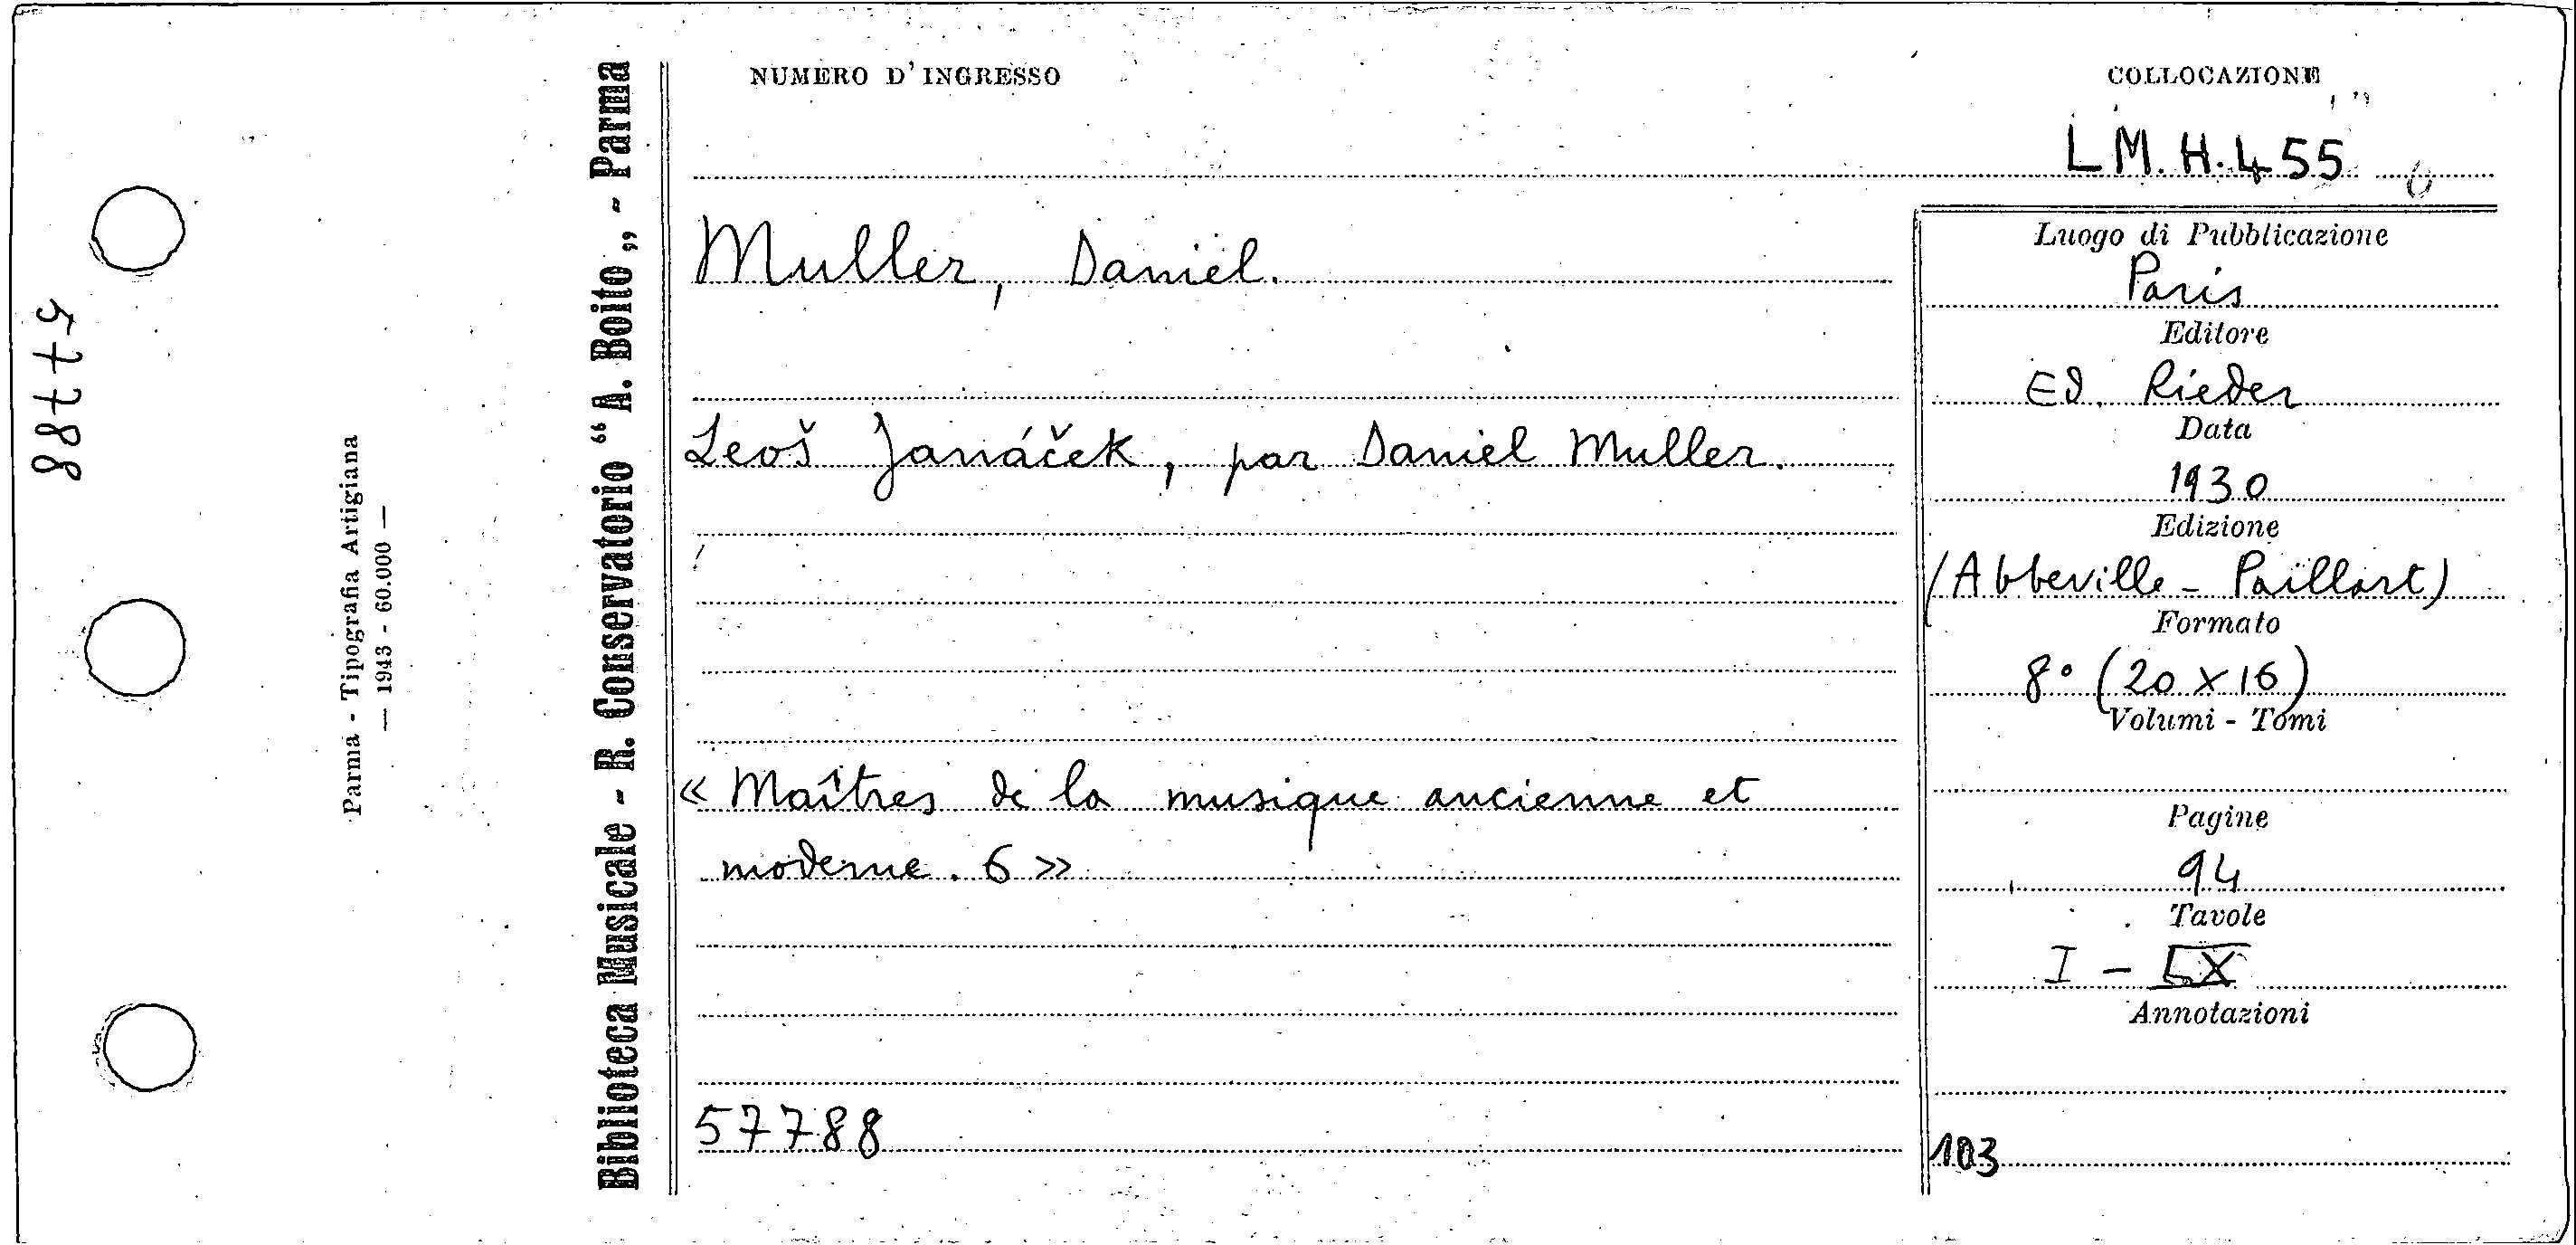 NUMERO D'INGRESSO
COLLOCAZIONE
LM.H.455
Muller, Daniel.
Leoš Janáček, par Daniel Muller.
« Maîtres de la musique ancienne et
moderne. 6 »
57788
Luogo di Pubblicazione
Paris
Editore
Ed. Rieder
Data
1930
Edizione
(Abbeville - Paillart)
Formato
8° (20 x 16)
Volumi - Tomi
Pagine
94
Tavole
I - LX
Annotazioni
103
Biblioteca Musicale - R. Conservatorio “A. Boito„ - Parma
Parma - Tipografia Artigiana
— 1943 - 60.000 —
57788